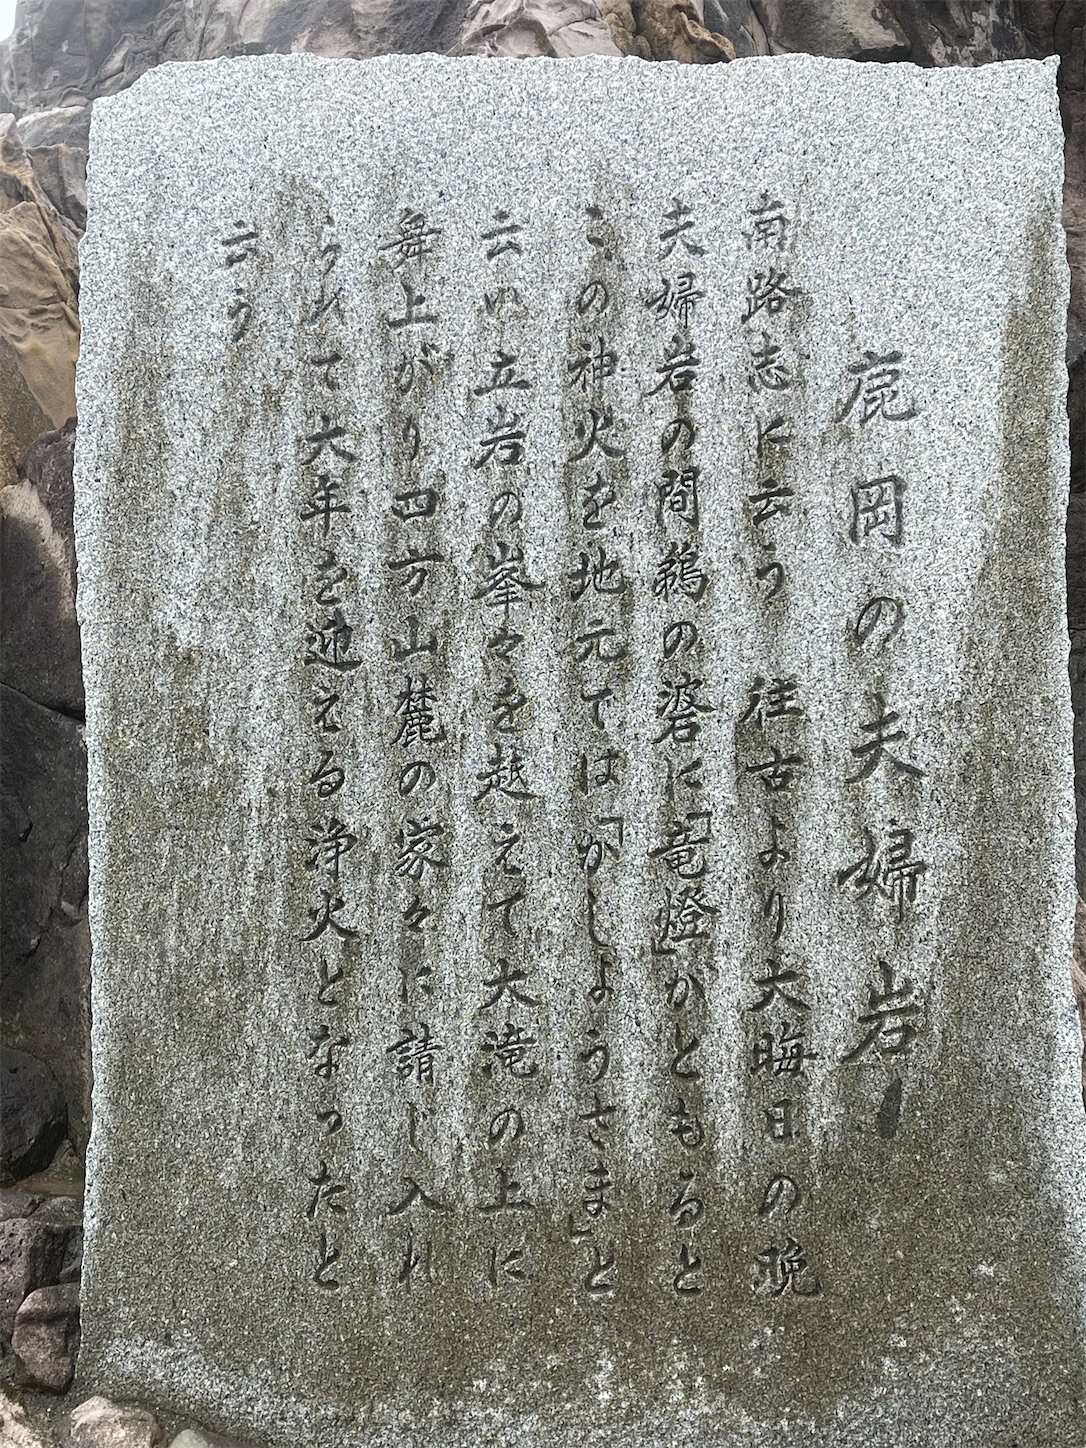 鹿岡の夫婦岩
南路志に云う 往古より大晦日の晩
夫婦岩の間鵜の碆に「竜燈」がともると
この神火を地元では「かしようさま」と
云い立岩の峯々を越えて大滝の上に
舞上がり四方山麓の家々に請じ入れ
られて六年を迎える浄火となったと
云う